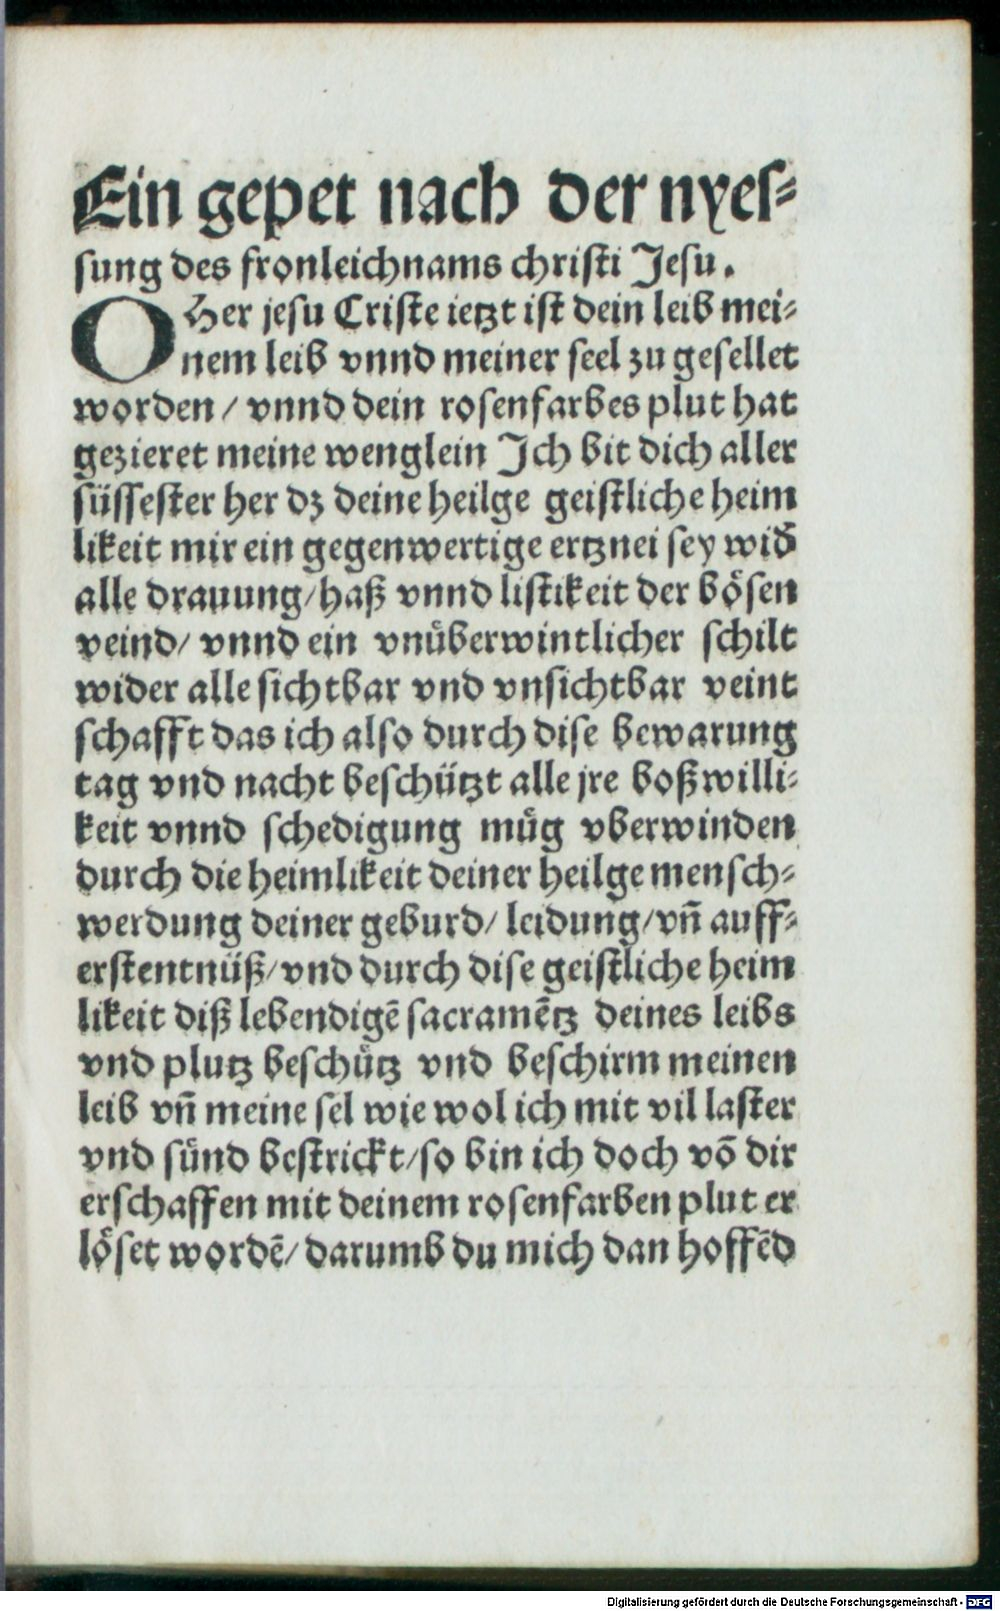 Ein gepet nach der nyes⸗
sung des fronleichnams christi Jesu.
O Her jesu Criste ietzt ist dein leib mei⸗
nem leib vnnd meiner seel zu gesellet
worden/ vnnd dein rosenfarbes plut hat
gezieret meine wenglein Ich bit dich aller
süssester her dz deine heilge geistliche heim
likeit mir ein gegenwertige ertznei sey wid̄
alle drauung/haß vnnd listikeit der bösen
veind/ vnnd ein vnüberwintlicher schilt
wider alle sichtbar vnd vnsichtbar veint
schafft das ich also durch dise bewarung
tag vnd nacht beschützt alle jre boßwilli⸗
keit vnnd schedigung müg vberwinden
durch die heimlikeit deiner heilge mensch⸗
werdung deiner geburd/ leidung/vn̄ auff⸗
erstentnüß/vnd durch dise geistliche heim
likeit diß lebendigē sacramētz deines leibs
vnd plutz beschütz vnd beschirm meinen
leib vn̄ meine sel wie wol ich mit vil laster
vnd sünd bestrickt/so bin ich doch vō dir
erschaffen mit deinem rosenfarben plut er
löset wordē/ darumb du mich dan hoffēd
Digitalisierung gefördert durch die Deutsche Forschungsgemeinschaft - DFG